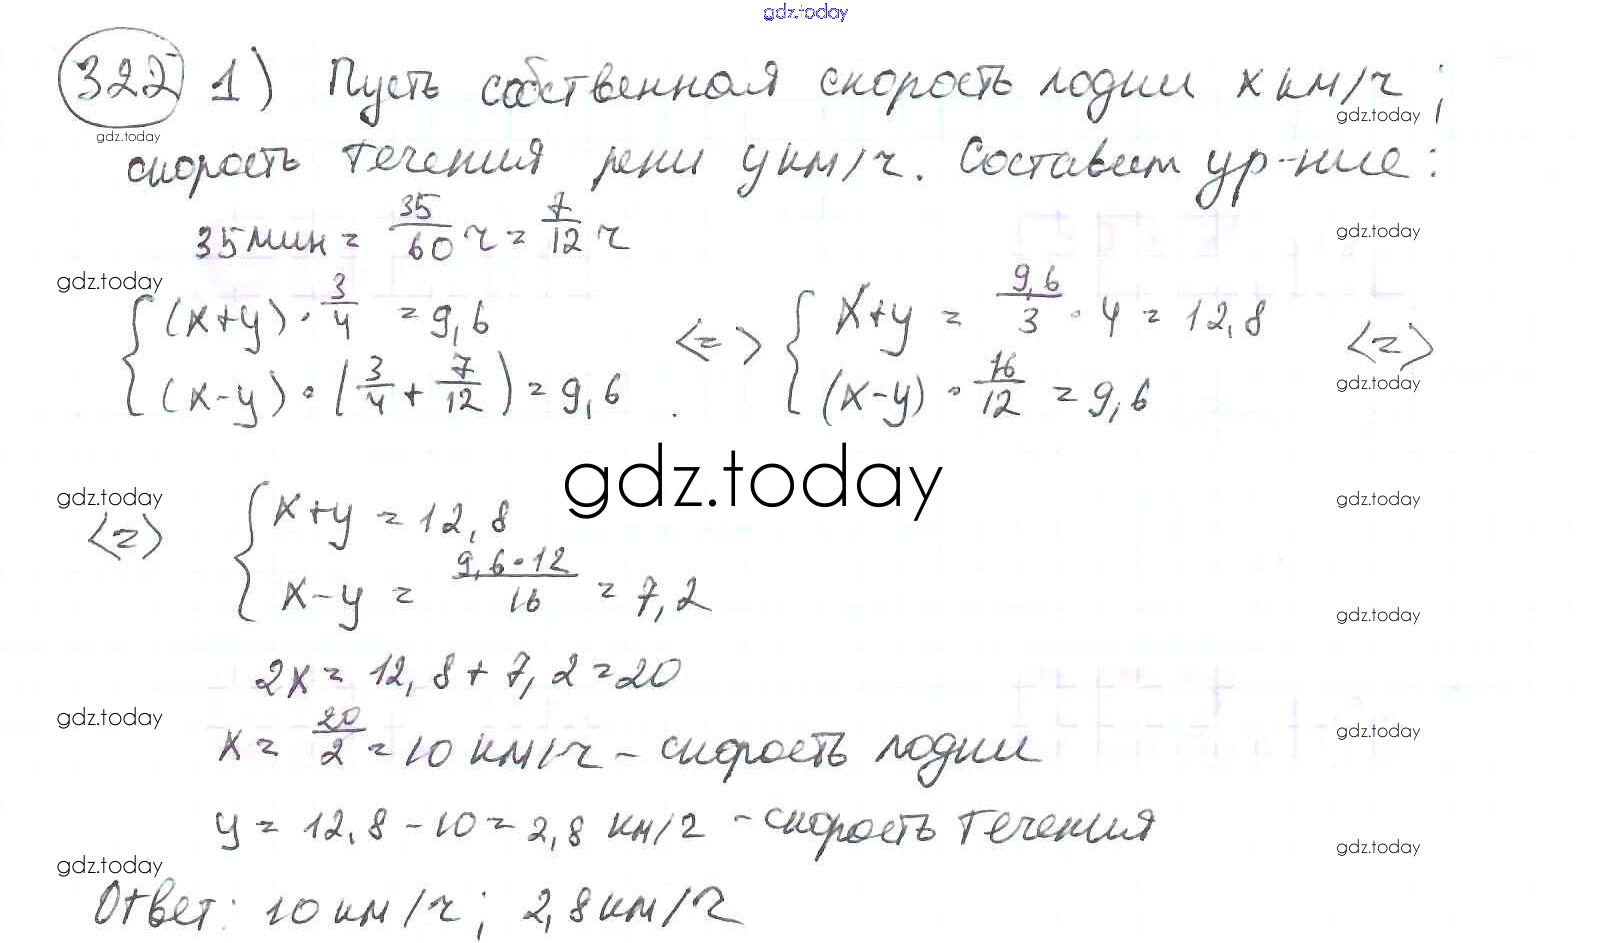 gdz.today
322 1) Пусть собственная скорость лодки x км/ч;
gdz.today gdz.today
скорость течения реки y км/ч. Составим ур-ние:
35 мин = 35/60 ч = 7/12 ч
gdz.today
gdz.today
{ (x+y) · 3/4 = 9,6 <=> { x+y = 9,6/3 · 4 = 12,8 <=>
(x-y) · (3/4 + 7/12) = 9,6 . (x-y) · 16/12 = 9,6
gdz.today
gdz.today
gdz.today gdz.today
<=> { x+y = 12,8
x-y = 9,6·12/16 = 7,2
gdz.today
2x = 12,8 + 7,2 = 20
gdz.today gdz.today
x = 20/2 = 10 км/ч - скорость лодки
y = 12,8 - 10 = 2,8 км/ч - скорость течения
gdz.today gdz.today
Ответ: 10 км/ч; 2,8 км/ч